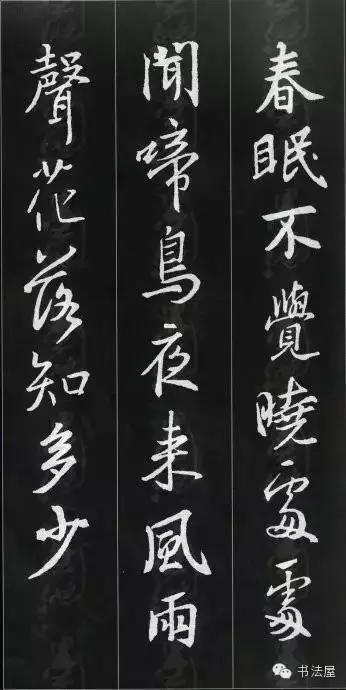 春眠不覺曉處處
聞啼鳥夜来風雨
聲花落知多少
书法屋